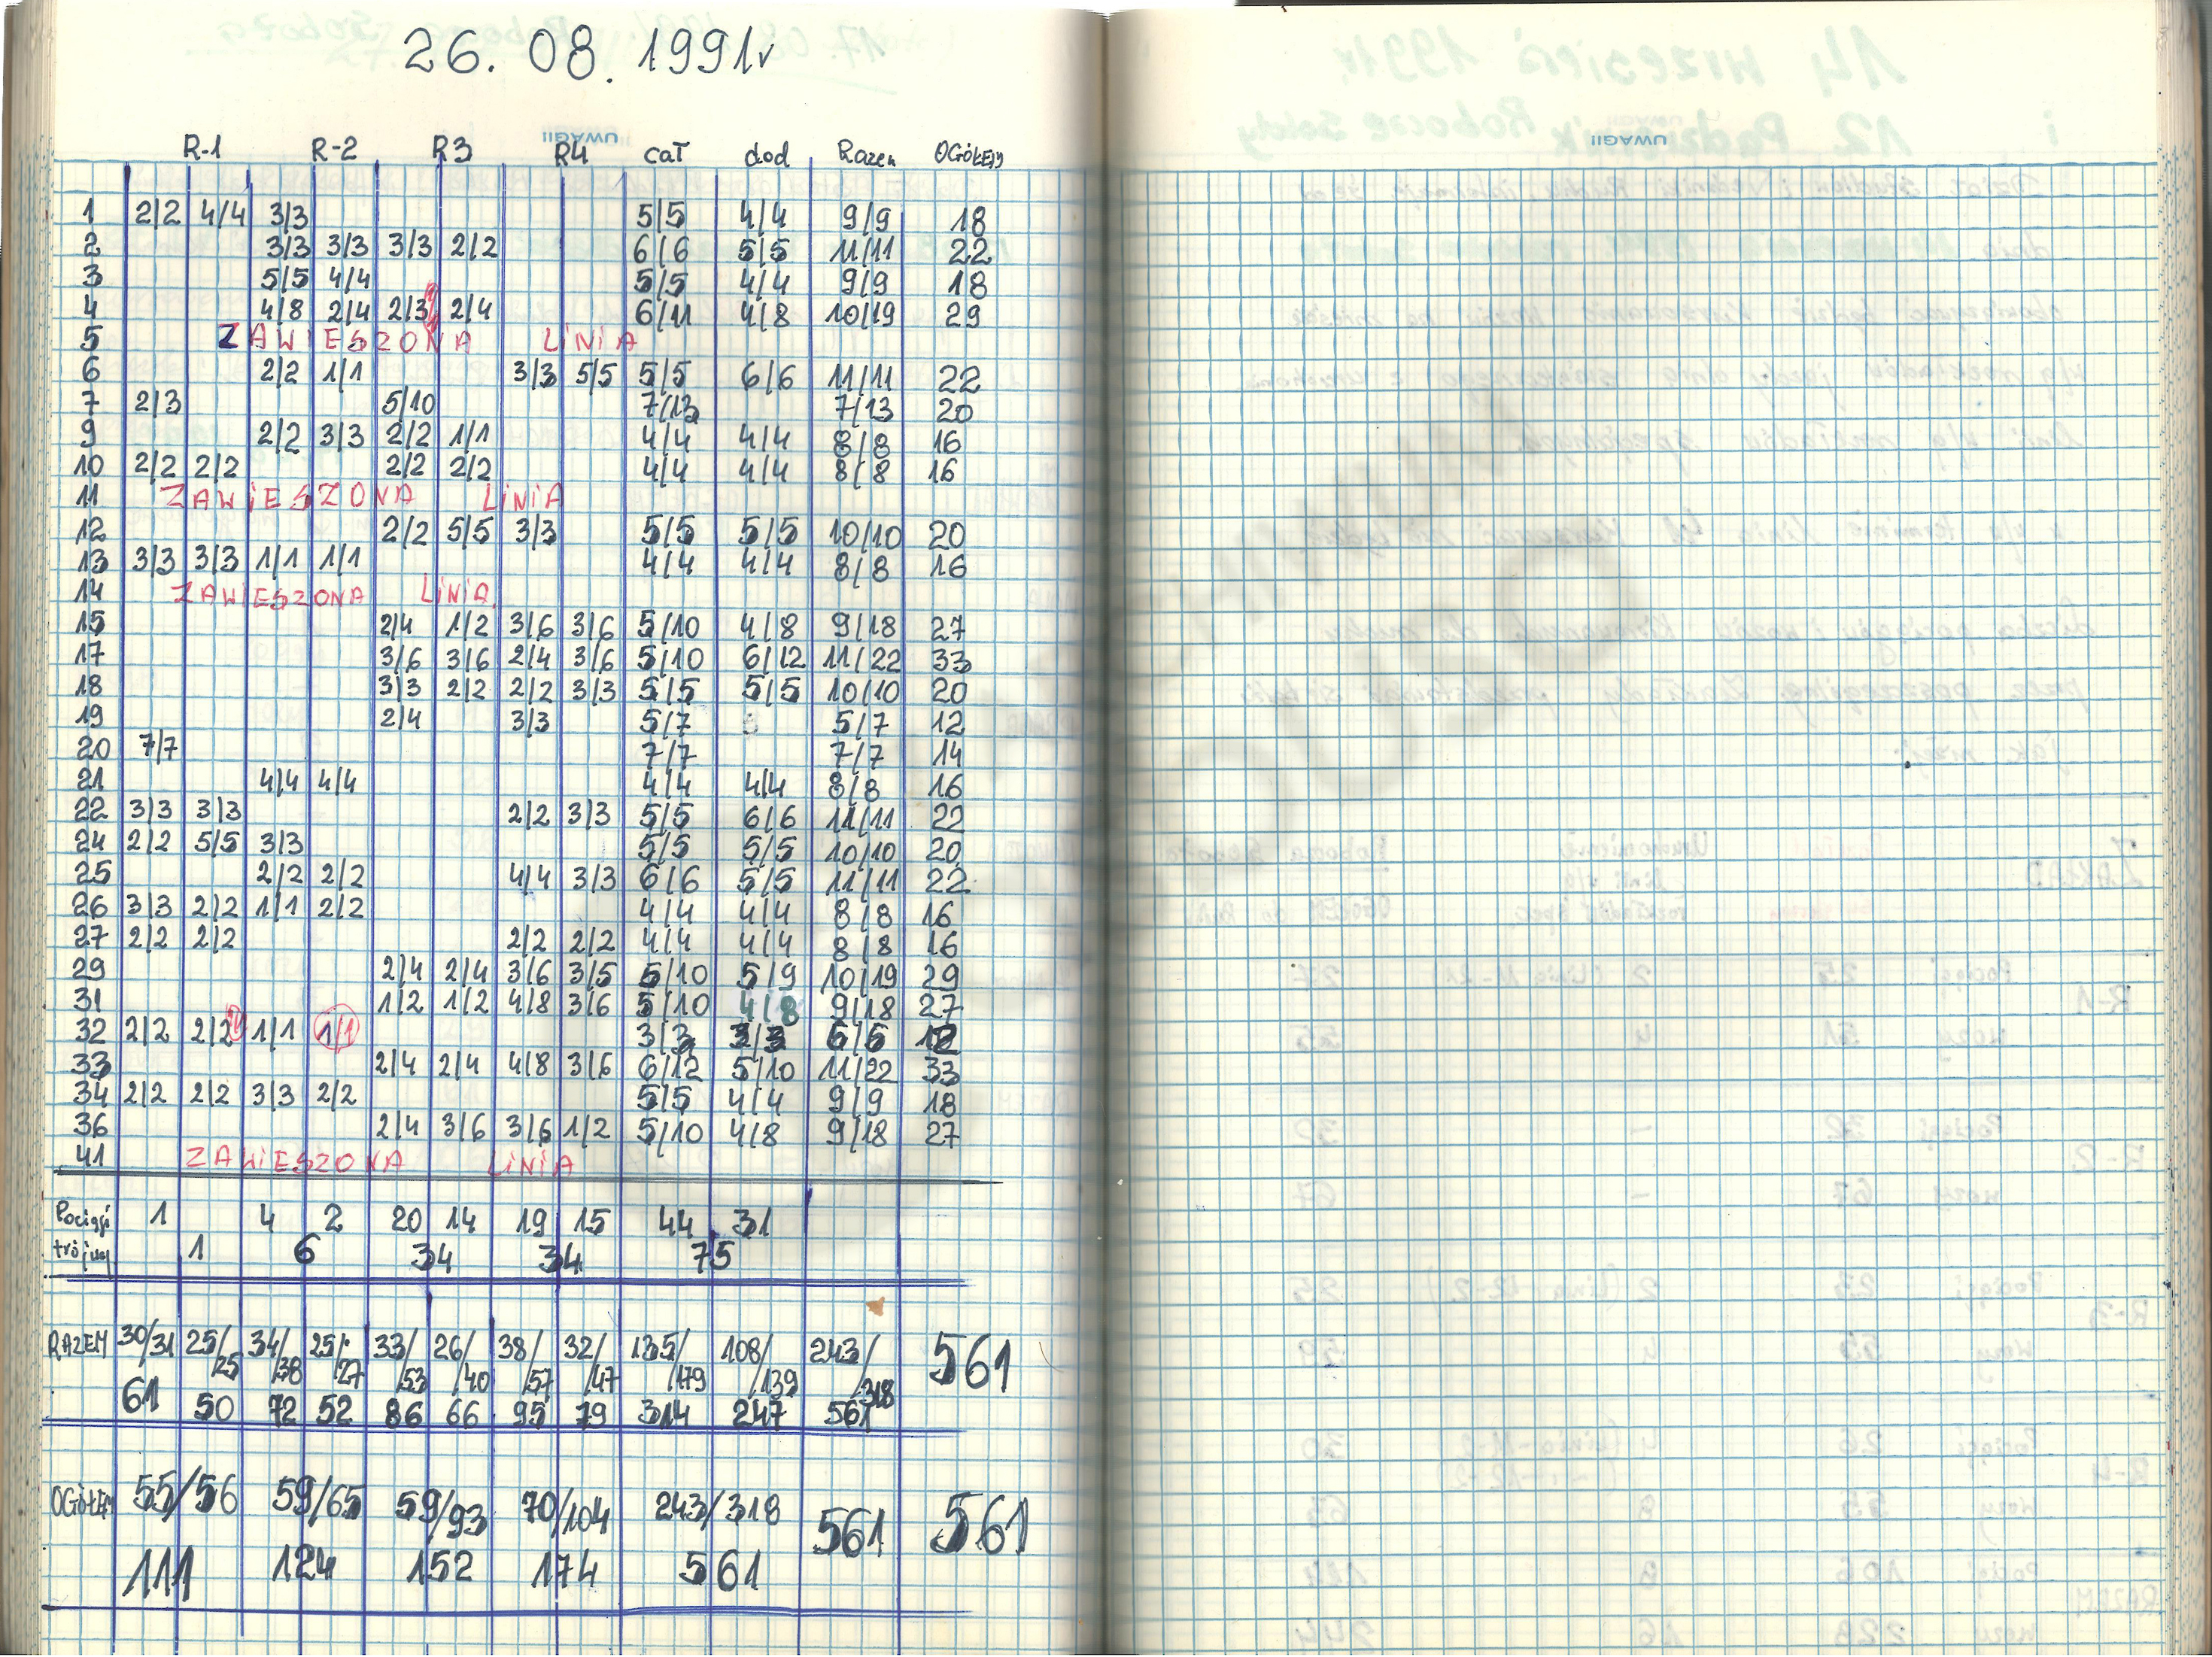 26. 08. 1991r
R-1 R-2 R3 R4 cał dod Razem OGÓŁEM
UWAGI
1 2/2 4/4 3/3 5/5 4/4 9/9 18
2 3/3 3/3 3/3 2/2 6/6 5/5 11/11 22
3 5/5 4/4 5/5 4/4 9/9 18
4 4/8 2/4 2/3 2/4 6/11 4/8 10/19 29
5 ZAWIESZONA LiNiA
6 2/2 1/1 3/3 5/5 5/5 6/6 11/11 22
7 2/3 5/10 7/13 7/13 20
9 2/2 3/3 2/2 1/1 4/4 4/4 8/8 16
10 2/2 2/2 2/2 2/2 4/4 4/4 8/8 16
11 ZAWiESZONA LiNiA
12 2/2 5/5 3/3 5/5 5/5 10/10 20
13 3/3 3/3 1/1 1/1 4/4 4/4 8/8 16
14 ZAWIESZONA LiNiA
15 2/4 1/2 3/6 3/6 5/10 4/8 9/18 27
17 3/6 3/6 2/4 3/6 5/10 6/12 11/22 33
18 3/3 2/2 2/2 3/3 5/5 5/5 10/10 20
19 2/4 3/3 5/7 5/7 12
20 7/7 7/7 7/7 14
21 4/4 4/4 4/4 4/4 8/8 16
22 3/3 3/3 2/2 3/3 5/5 6/6 11/11 22
24 2/2 5/5 3/3 5/5 5/5 10/10 20
25 2/2 2/2 4/4 3/3 6/6 5/5 11/11 22
26 3/3 2/2 1/1 2/2 4/4 4/4 8/8 16
27 2/2 2/2 2/2 2/2 4/4 4/4 8/8 16
29 2/4 2/4 3/6 3/5 5/10 5/9 10/19 29
31 1/2 1/2 4/8 3/6 5/10 4/8 9/18 27
32 2/2 2/2 1/1 1/1 3/3 3/3 6/6 12
33 2/4 2/4 4/8 3/6 6/12 5/10 11/22 33
34 2/2 2/2 3/3 2/2 5/5 4/4 9/9 18
36 2/4 3/6 3/6 1/2 5/10 4/8 9/18 27
41 ZAWiESZONA LiNiA
Pociągi 1 4 2 20 14 19 15 44 31
1 6 34 34 75
RAZEM 30/31 25/25 34/38 25/27 33/53 26/40 38/57 32/47 135/179 108/139 243/318 561
61 50 72 52 86 66 95 79 314 247 561
OGÓŁEM 55/56 59/65 59/93 70/104 243/318 561 561
111 124 152 174 561
UWAGI